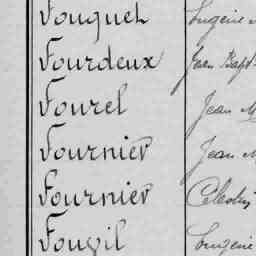 Fouquet Eugène
Fourdeux Jean Bapt
Fourel Jean M
Fournier Jean M
Fournier Célestin
Eugène